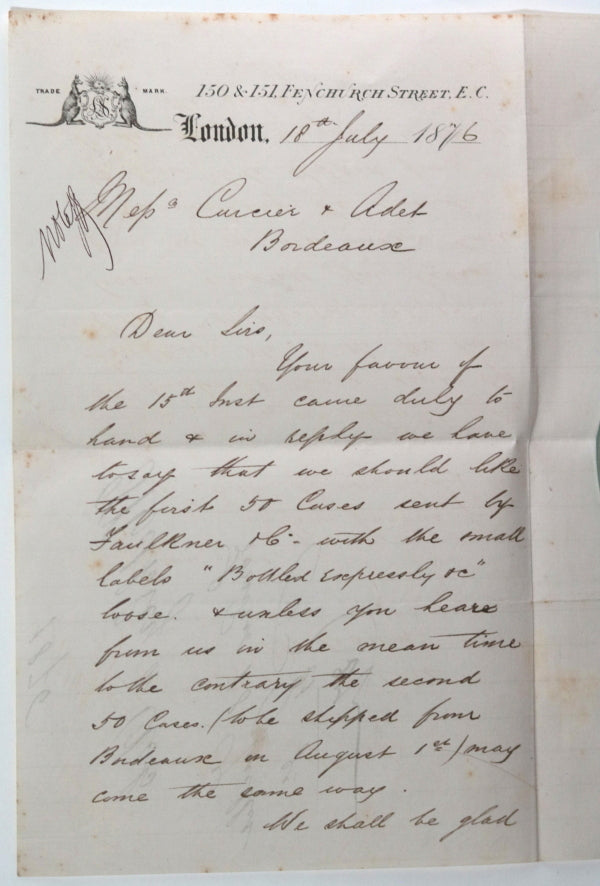 TRADE MARK.
150 & 151, FENCHURCH STREET, E.C.
London, 18th July 1876
Messrs Curcier & Adet
Bordeaux
Dear Sirs,
Your favour of
the 15th Inst came duly to
hand & in reply we have
to say that we should like
the first 50 Cases sent by
Faulkner &Co- with the small
labels "Bottled expressly &c"
loose. & unless you hear
from us in the mean time
to the contrary the second
50 Cases. (to be shipped from
Bordeaux in August 1st) may
come the same way.
We shall be glad